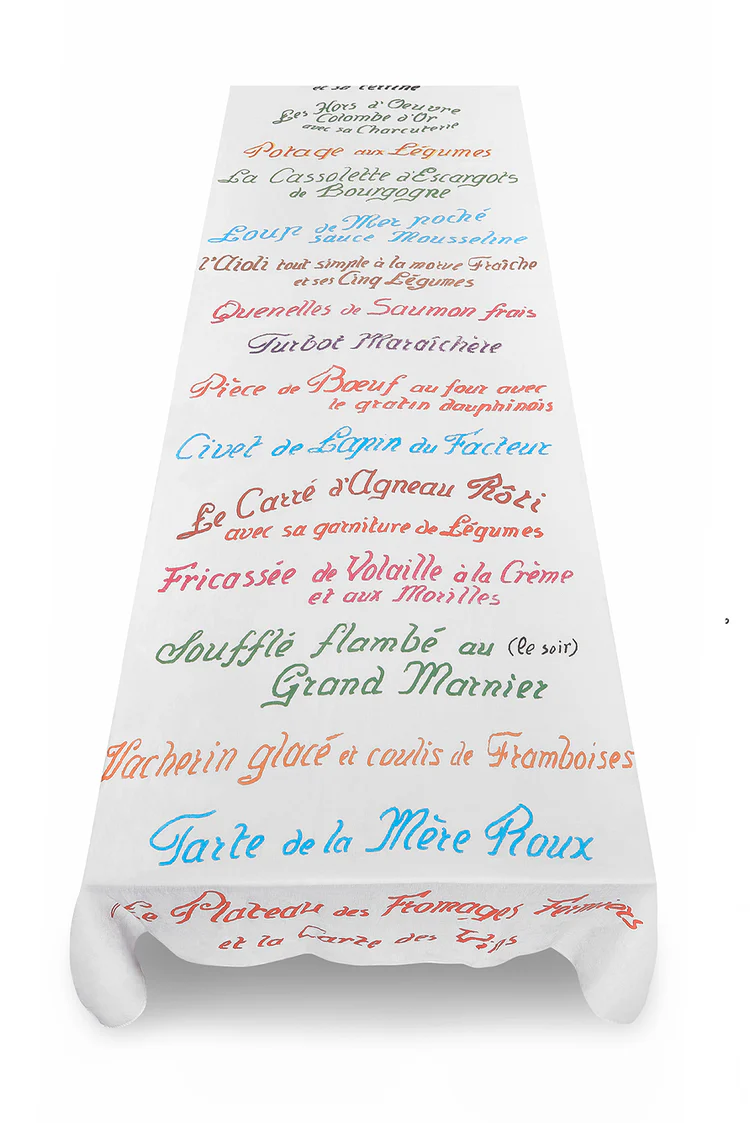 et sa terrine
Les Hors d'Oeuvre
Colombe d'Or
avec sa Charcuterie
Potage aux Légumes
La Cassolette d'Escargots
de Bourgogne
Loup de Mer poché
sauce Mousseline
l'Aïoli tout simple à la morue Fraîche
et ses Cinq Légumes
Quenelles de Saumon frais
Turbot Maraîchère
Pièce de Bœuf au four avec
le gratin dauphinois
Civet de Lapin du Facteur
Le Carré d'Agneau Rôti
avec sa garniture de Légumes
Fricassée de Volaille à la Crème
et aux Morilles
Soufflé flambé au (le soir)
Grand Marnier
Vacherin glacé et coulis de Framboises
Tarte de la Mère Roux
Le Plateau des Fromages Fermiers
et la Carte des